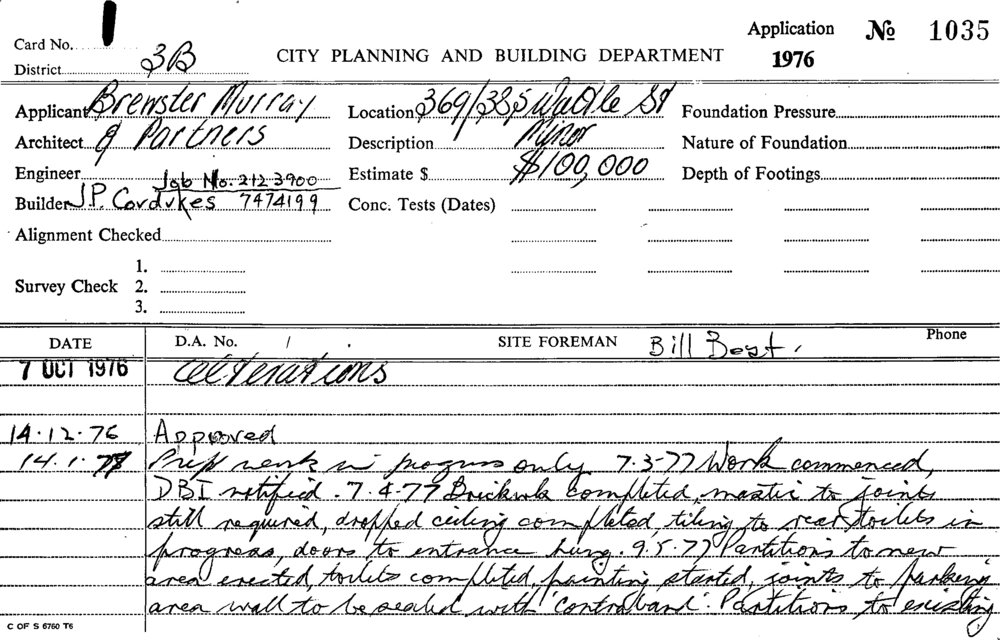 Application № 1035
Card No.
District 3B
CITY PLANNING AND BUILDING DEPARTMENT
1976
Applicant Brewster Murray
Location 369/385 Wattle St
Foundation Pressure
Architect & Partners
Description Minor
Nature of Foundation
Engineer Job No. 212 3900
Estimate $ $100,000
Depth of Footings
Builder J.P. Cordukes 7474199
Conc. Tests (Dates)
Alignment Checked
1.
Survey Check 2.
3.
DATE D.A. No. / SITE FOREMAN Bill Best. Phone
7 OCT 1976 alterations
14.12.76 Approved
14.1.77 Prep work in progress only 7.3-77 Work commenced,
DBI notified. 7.4.77 Brickwk completed, mastic to joints
still required, dropped ceiling completed, tiling to rear toilets in
progress, doors to entrance hung. 9.5.77 Partitions to new
area erected toilets completed, painting started, joints to parking
area wall to be sealed with 'contraband'. Partitions to existing
C OF S 6760 T6